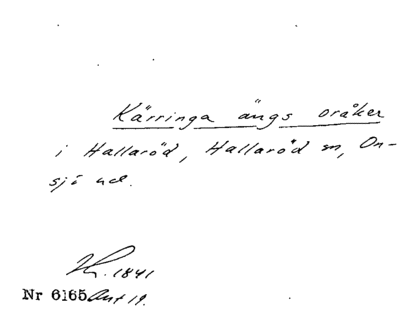 Kärringa ängs oråker
i Hallaröd, Hallaröd sn, On-
sjö hd.
1841
Nr 6165 Ant 19.